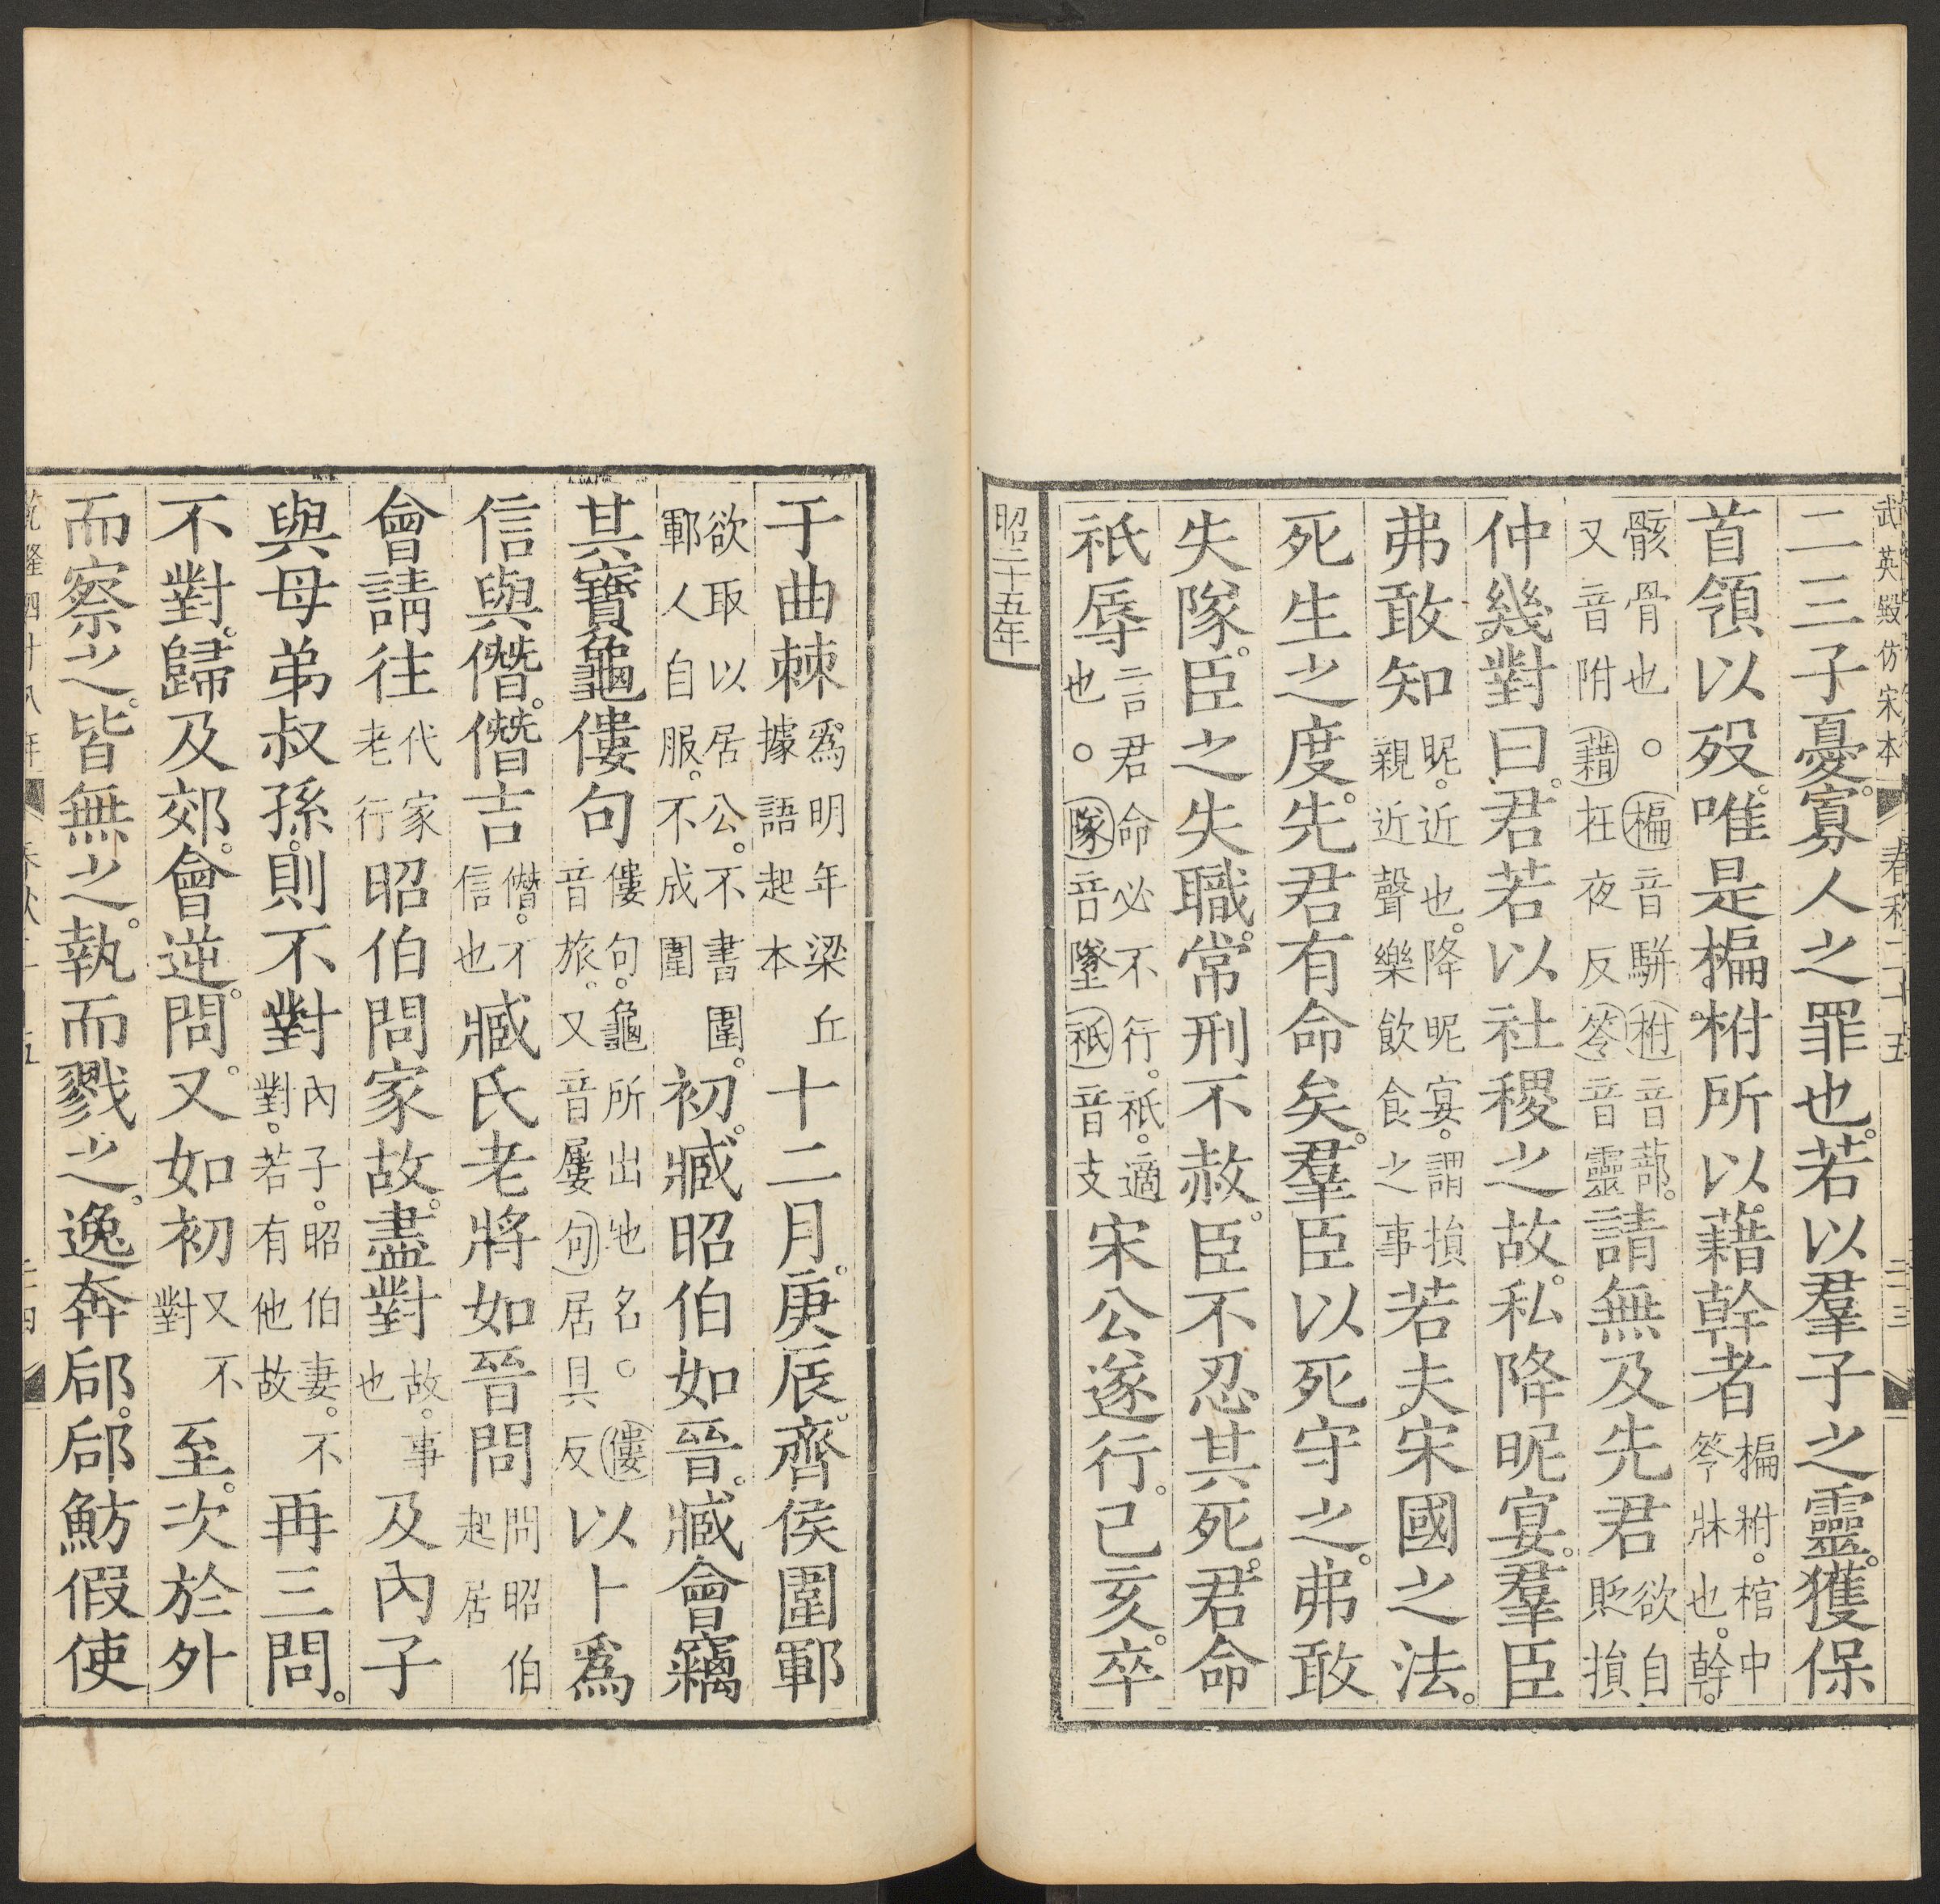 武英殿仿宋本 春秋二十五 二三
二三子憂。寡人之罪也。若以羣子之靈。獲保
首領以歿。唯是楄柎所以藉幹者楄柎。棺中笭牀也。幹。
骸骨也。○楄音駢柎音蔀。又音附藉在夜反笭音靈請無及先君欲自貶損
仲幾對曰。君若以社稷之故。私降昵宴。羣臣
弗敢知昵。近也。降昵宴。謂損親近聲樂飲食之事若夫宋國之法。
死生之度。先君有命矣。羣臣以死守之。弗敢
失隊。臣之失職。常刑不赦。臣不忍其死。君命
祇辱言君命必不行。祇。適也。○隊音墜祇音支宋公遂行。己亥。卒
昭二十五年
于曲棘爲明年梁丘據語起本十二月。庚辰。齊侯圍鄆
欲取以居公。不書圍。鄆人自服。不成圍初。臧昭伯如晉。臧會竊
其寶龜僂句僂句。龜所出地名。○僂音旅。又音屢句居具反以卜爲
信與僭。僭吉僭。不信也臧氏老將如晉問問昭伯起居
會請往代家老行昭伯問家故。盡對故。事也及內子
與母弟叔孫。則不對內子。昭伯妻。不對。若有他故再三問。
不對。歸及郊。會逆。問。又如初又不對至。次於外
而察之。皆無之。執而戮之。逸奔郈。郈魴假使
乾隆四十八年 春秋二十五 二四